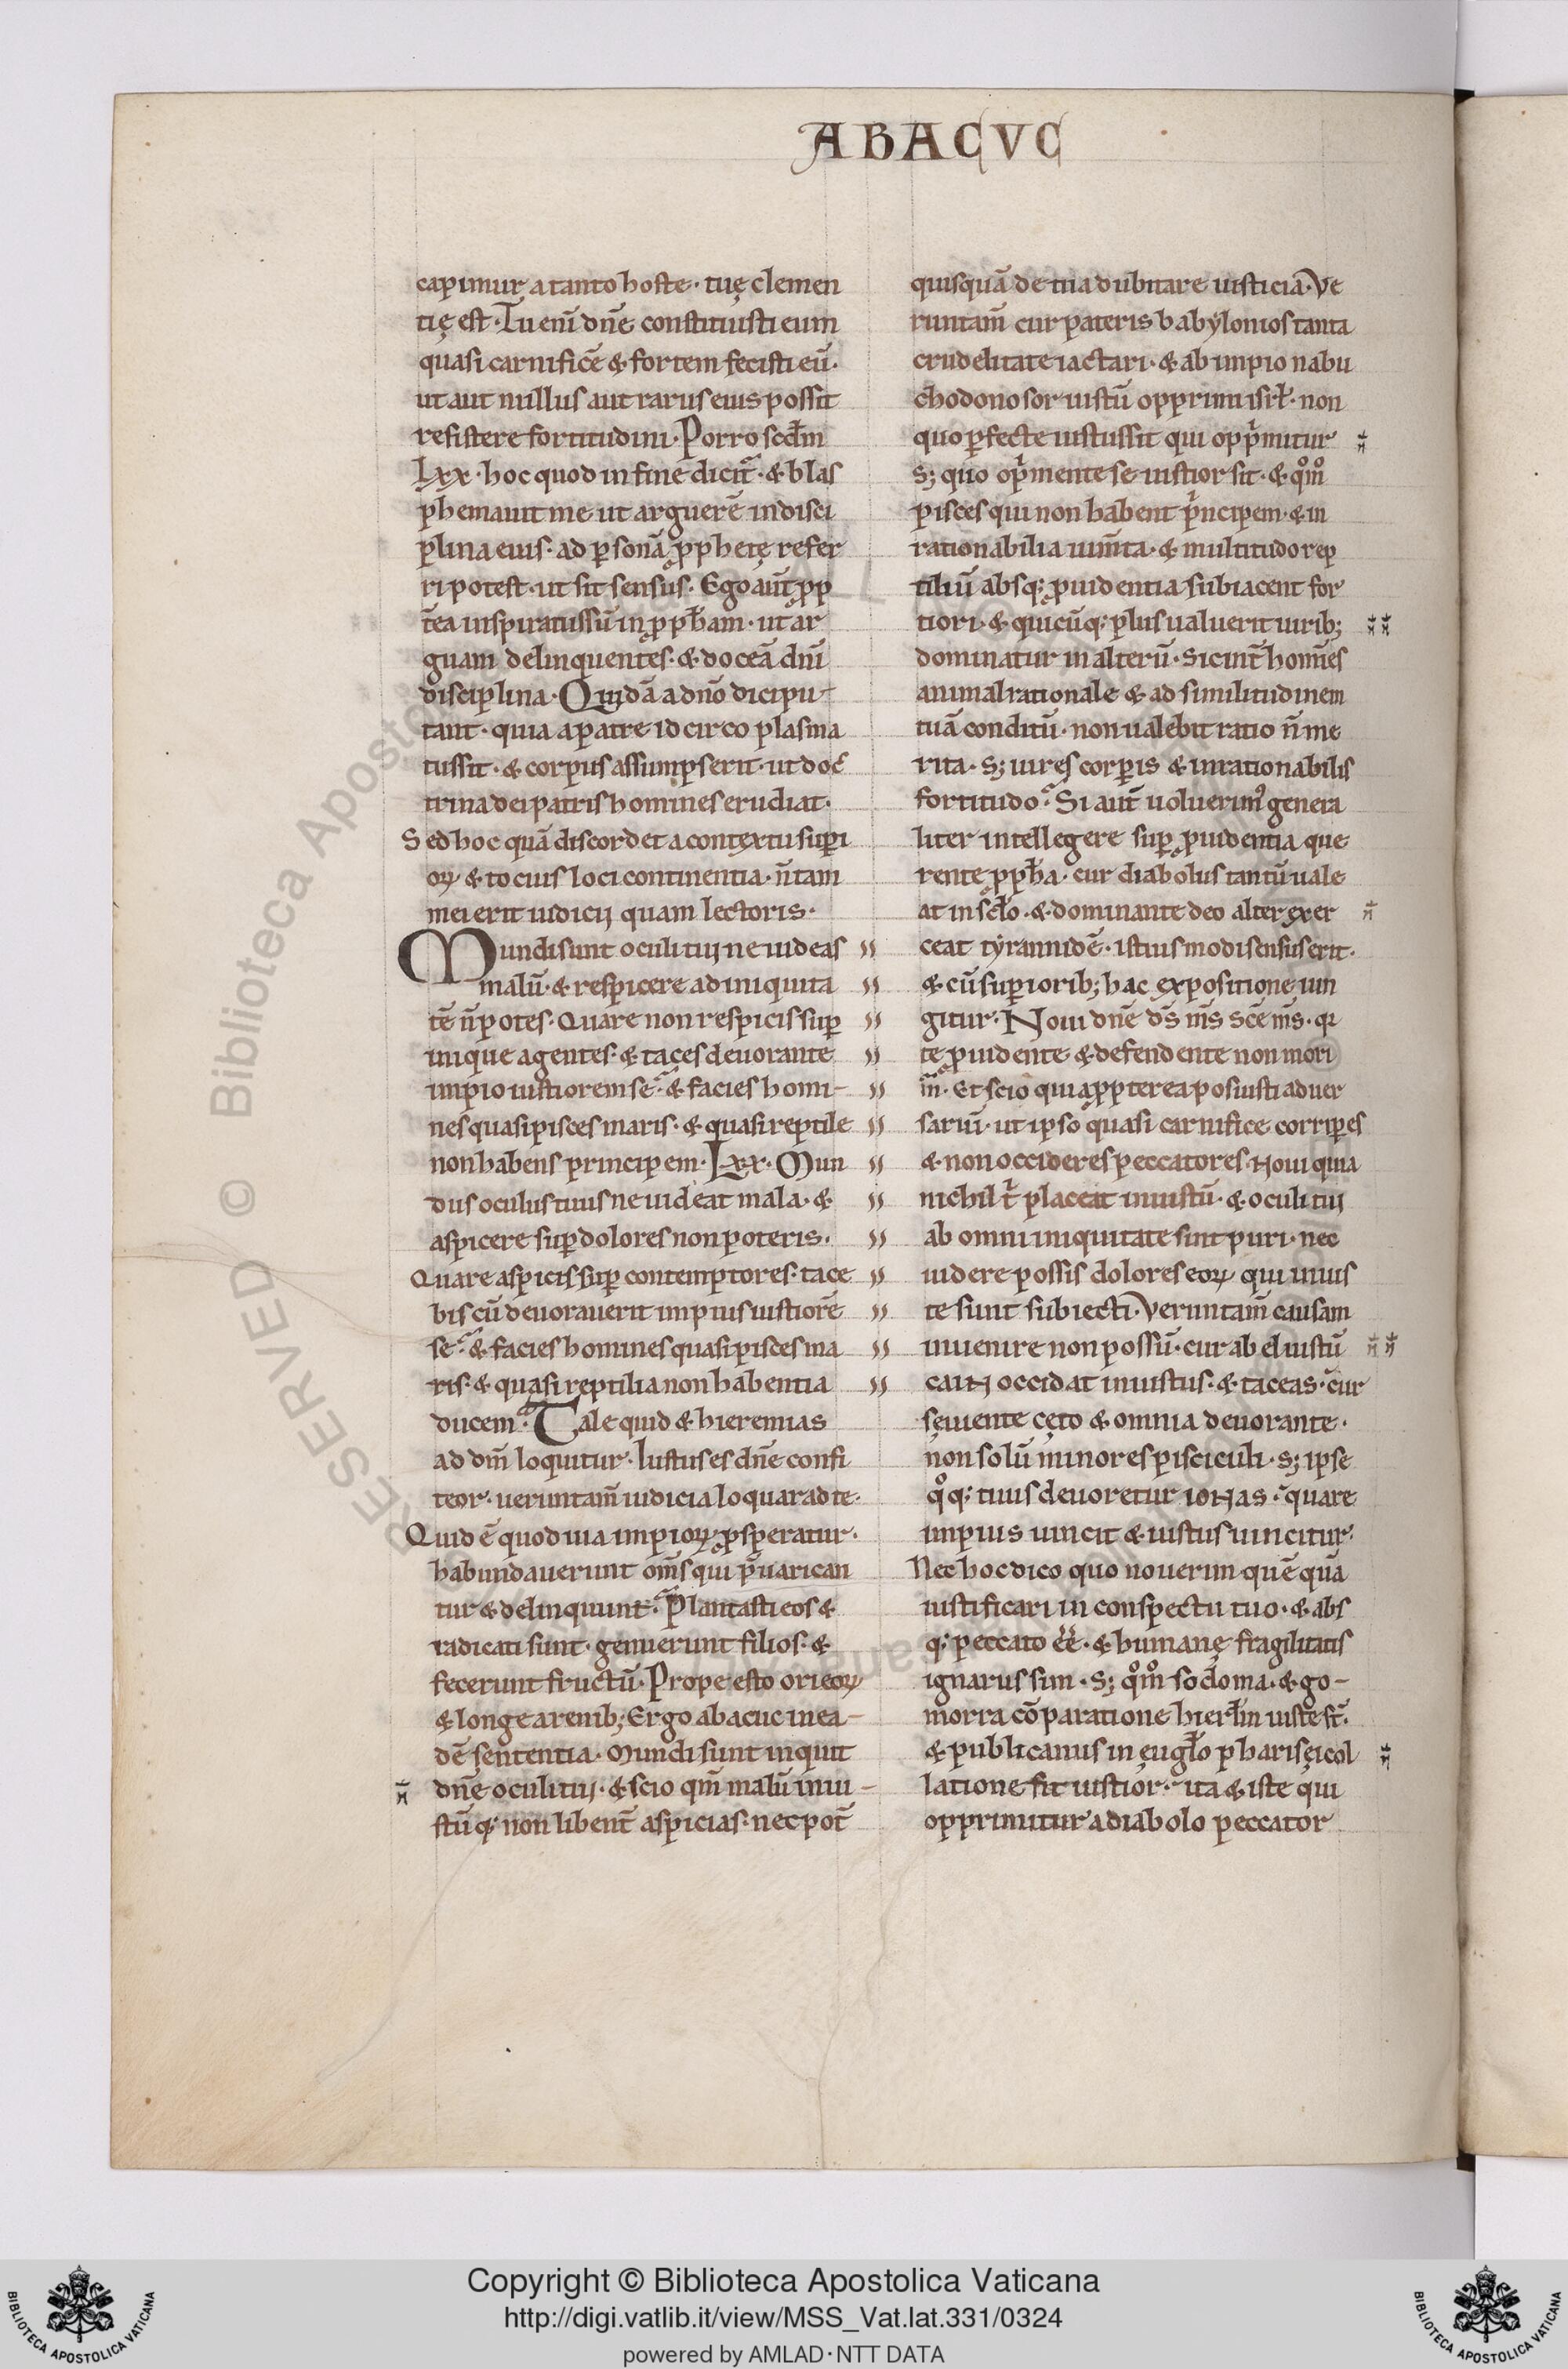 ABACVC
capimur a tanto hoste · tuę clemen
tię est · Tu eni̅ dn̅e constituisti eum
quasi carnifice̅ & fortem fecisti eu̅ ·
ut aut nullus aut rarus eius possit
resistere fortitudini · Porro scd̅m
Lxx · hoc quod in fine dicit̃ · & blas
phemauit me ut arguere̅ indisci
plina eius · ad ꝑsona̅ ꝓphetę refer
ri potest · ut sit sensus · Ego aut̅ ꝓp
t̅ea inspiratus su̅ in ꝓph̅am · ut ar
guam delinquentes · & docea̅ dn̅i
disciplina · Quida̅ a dn̅o dici pu-
tant · quia a patre idcirco plasma
tus sit · & corpus assumpserit · ut doc
trina dei patris homines erudiat ·
Sed hoc qua̅ discordet a contextu suꝑi
oꝝ & tocius loci continentia · n̅ tam
mei erit iudicij quam lectoris ·
Mundi sunt oculi tui ne uideas
malu̅ · & respicere ad iniquita
te̅ n̅ potes · Quare non respicis suꝑ
inique agentes · & taces deuorante
impio iustiorem se · & facies homi-
nes quasi pisces maris · & quasi reptile
non habens principem · Lxx · Mun
dus oculus tuus ne uideat mala · &
aspicere suꝑ dolores non poteris ·
Quare aspicis suꝑ contemptores · tace
bis cu̅ deuorauerit impius iustiore̅
se · & facies homines quasi pisces ma
ris · & quasi reptilia non habentia
ducem · Tale quid & hieremias
ad dm̅ loquitur · Iustus es dn̅e confi
teor · ueruntam̅ iudicia loquar ad te ·
Quid e̅ quod uia impioꝝ ꝓsperatur ·
habundauerunt om̅s qui p̅uarican
tur & delinquunt · Plantasti eos &
radicati sunt · genuerunt filios · &
fecerunt fructu̅ · Prope es to ori eoꝝ
& longe a renib; Ergo abacuc in ea-
de̅ sententia · Mundi sunt inquit
dn̅e oculi tui · & scio qm̅ malu̅ iniu-
stu̅q; non libent̅ aspicias · nec pot̅
quisqua̅ de tua dubitare iusticia · Ve
runtam̅ cur pateris babylonios tanta
crudelitate iactari · & ab impio nabu
chodonosor iustu̅ opprimi isrł · non
quo ꝑfecte iustus sit qui opp̍mitur
s; quo op̍mente se iustior sit · & qͦmͦ
pisces qui non habent p̍ncipem · & in
rationabilia ium̅ta · & multitudo rep
tiliu̅ absq; ꝓuidentia subiacent for
tiori · & quicu̅q; plus ualuerit uirib;
dominatur in alteru̅ · sic int̅ homi̅es
animal rationale & ad similitudinem
tua̅ conditu̅ · non ualebit ratio n̅ me
rita · s; uires corꝑis & inrationabilis
fortitudo · Si aut̅ uoluerimꝰ genera
liter intellegere suꝑ ꝓuidentia que
rente ꝓph̅a · cur diabolus tantu̅ uale
at in scło · & dominante deo alter exer
ceat tyrannide̅ · istius modi sensus erit ·
& cu̅ suꝑiorib; hac expositione iun
gitur · Noui dn̅e ds̅ ms̅ sce̅ ms̅ · qꝛ
te ꝓuidente & defendente non mori
m̅ · Et scio quia ꝓpterea posuisti aduer
sariu̅ · ut ipso quasi carnifice corriꝑes
& non occideres peccatores · Noui quia
nichil t̍ placeat iniustu̅ · & oculi tui
ab omni iniquitate sint puri · nec
uidere possis dolores eoꝝ qui inius
te sunt subiecti · Veruntam̅ causam
inuenire non possu̅ · cur abel iustu̅
cain occidat iniustus · & taceas · cur
sęuiente cęto & omnia deuorante ·
non solu̅ minores pisciculi · s; ipse
qͦq; tuus deuoretur ionas · quare
impius uincit & iustus uincitur ·
Nec hoc dico quo nouerim que̅qua̅
iustificari in conspectu tuo · & abs
q; peccato ee̅ · & humanę fragilitatis
ignarus sim · s; qͦmͦ sodoma · & go-
morra co̅paratione hierłm iuste st̅ ·
& publicanus in eugło pharisęi col
latione fit iustior · ita & iste qui
opprimitur a diabolo peccator
RESERVED © Biblioteca Aposto
Copyright © Biblioteca Apostolica Vaticana
http://digi.vatlib.it/view/MSS_Vat.lat.331/0324
powered by AMLAD · NTT DATA
BIBLIOTECA APOSTOLICA VATICANA
BIBLIOTECA APOSTOLICA VATICANA